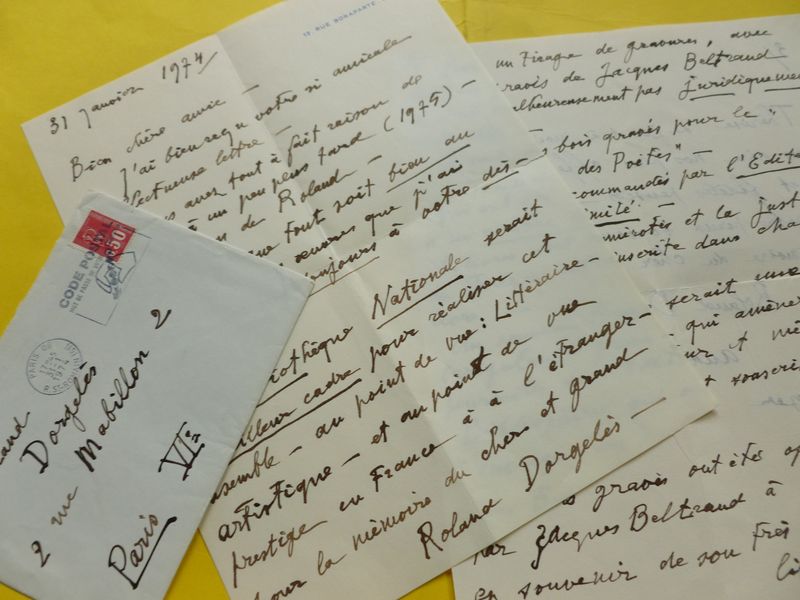 RUE BONAPARTE
31 Janvier 1974
Bien chère amie —
J'ai bien reçu votre si amicale
lettre —
avez tout à fait raison de
à un peu plus tard (1975) —
de Roland —
tout soit bien au
œuvres que j'ai
toujours à votre dés-
Nationale serait
cadre pour réaliser cet
— au point de vue : Littéraire —
artistique — et au point de vue
prestige en France à à l'étranger —
pour la mémoire du cher et grand
Roland Dorgelès —
un tirage de gravures, avec
gravés de Jacques Beltrand
malheureusement pas juridiquement
bois gravés pour le :
des Poètes" —
commandés par l'Edite
et la just
inscrite dans cha
serait une
qui amène
et mé
souscri
gravés ont étés
par Jacques Beltrand à
en souvenir de son très
li
50
CODE POSTAL
PARIS
1974
Dorgelès
2 rue Mabillon 2
Paris VIe